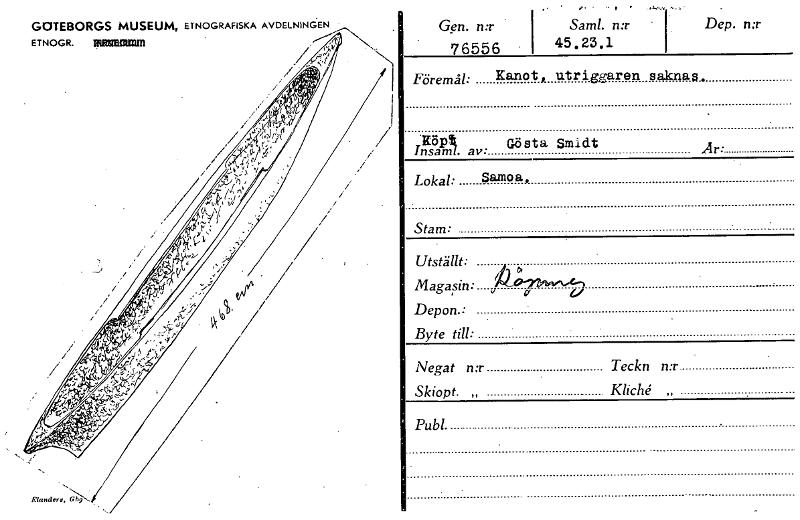 GÖTEBORGS MUSEUM, ETNOGRAFISKA AVDELNINGEN
ETNOGR.
468 cm
Elanders, Gbg
Gen. n:r Saml. n:r Dep. n:r
76556 45.23.1
Föremål: Kanot, utriggaren saknas.
Köpt
Insaml. av: Gösta Smidt År:
Lokal: Samoa.
Stam:
Utställt:
Magasin:
Depon.:
Byte till:
Negat n:r Teckn n:r
Skiopt. „ Kliché „
Publ.